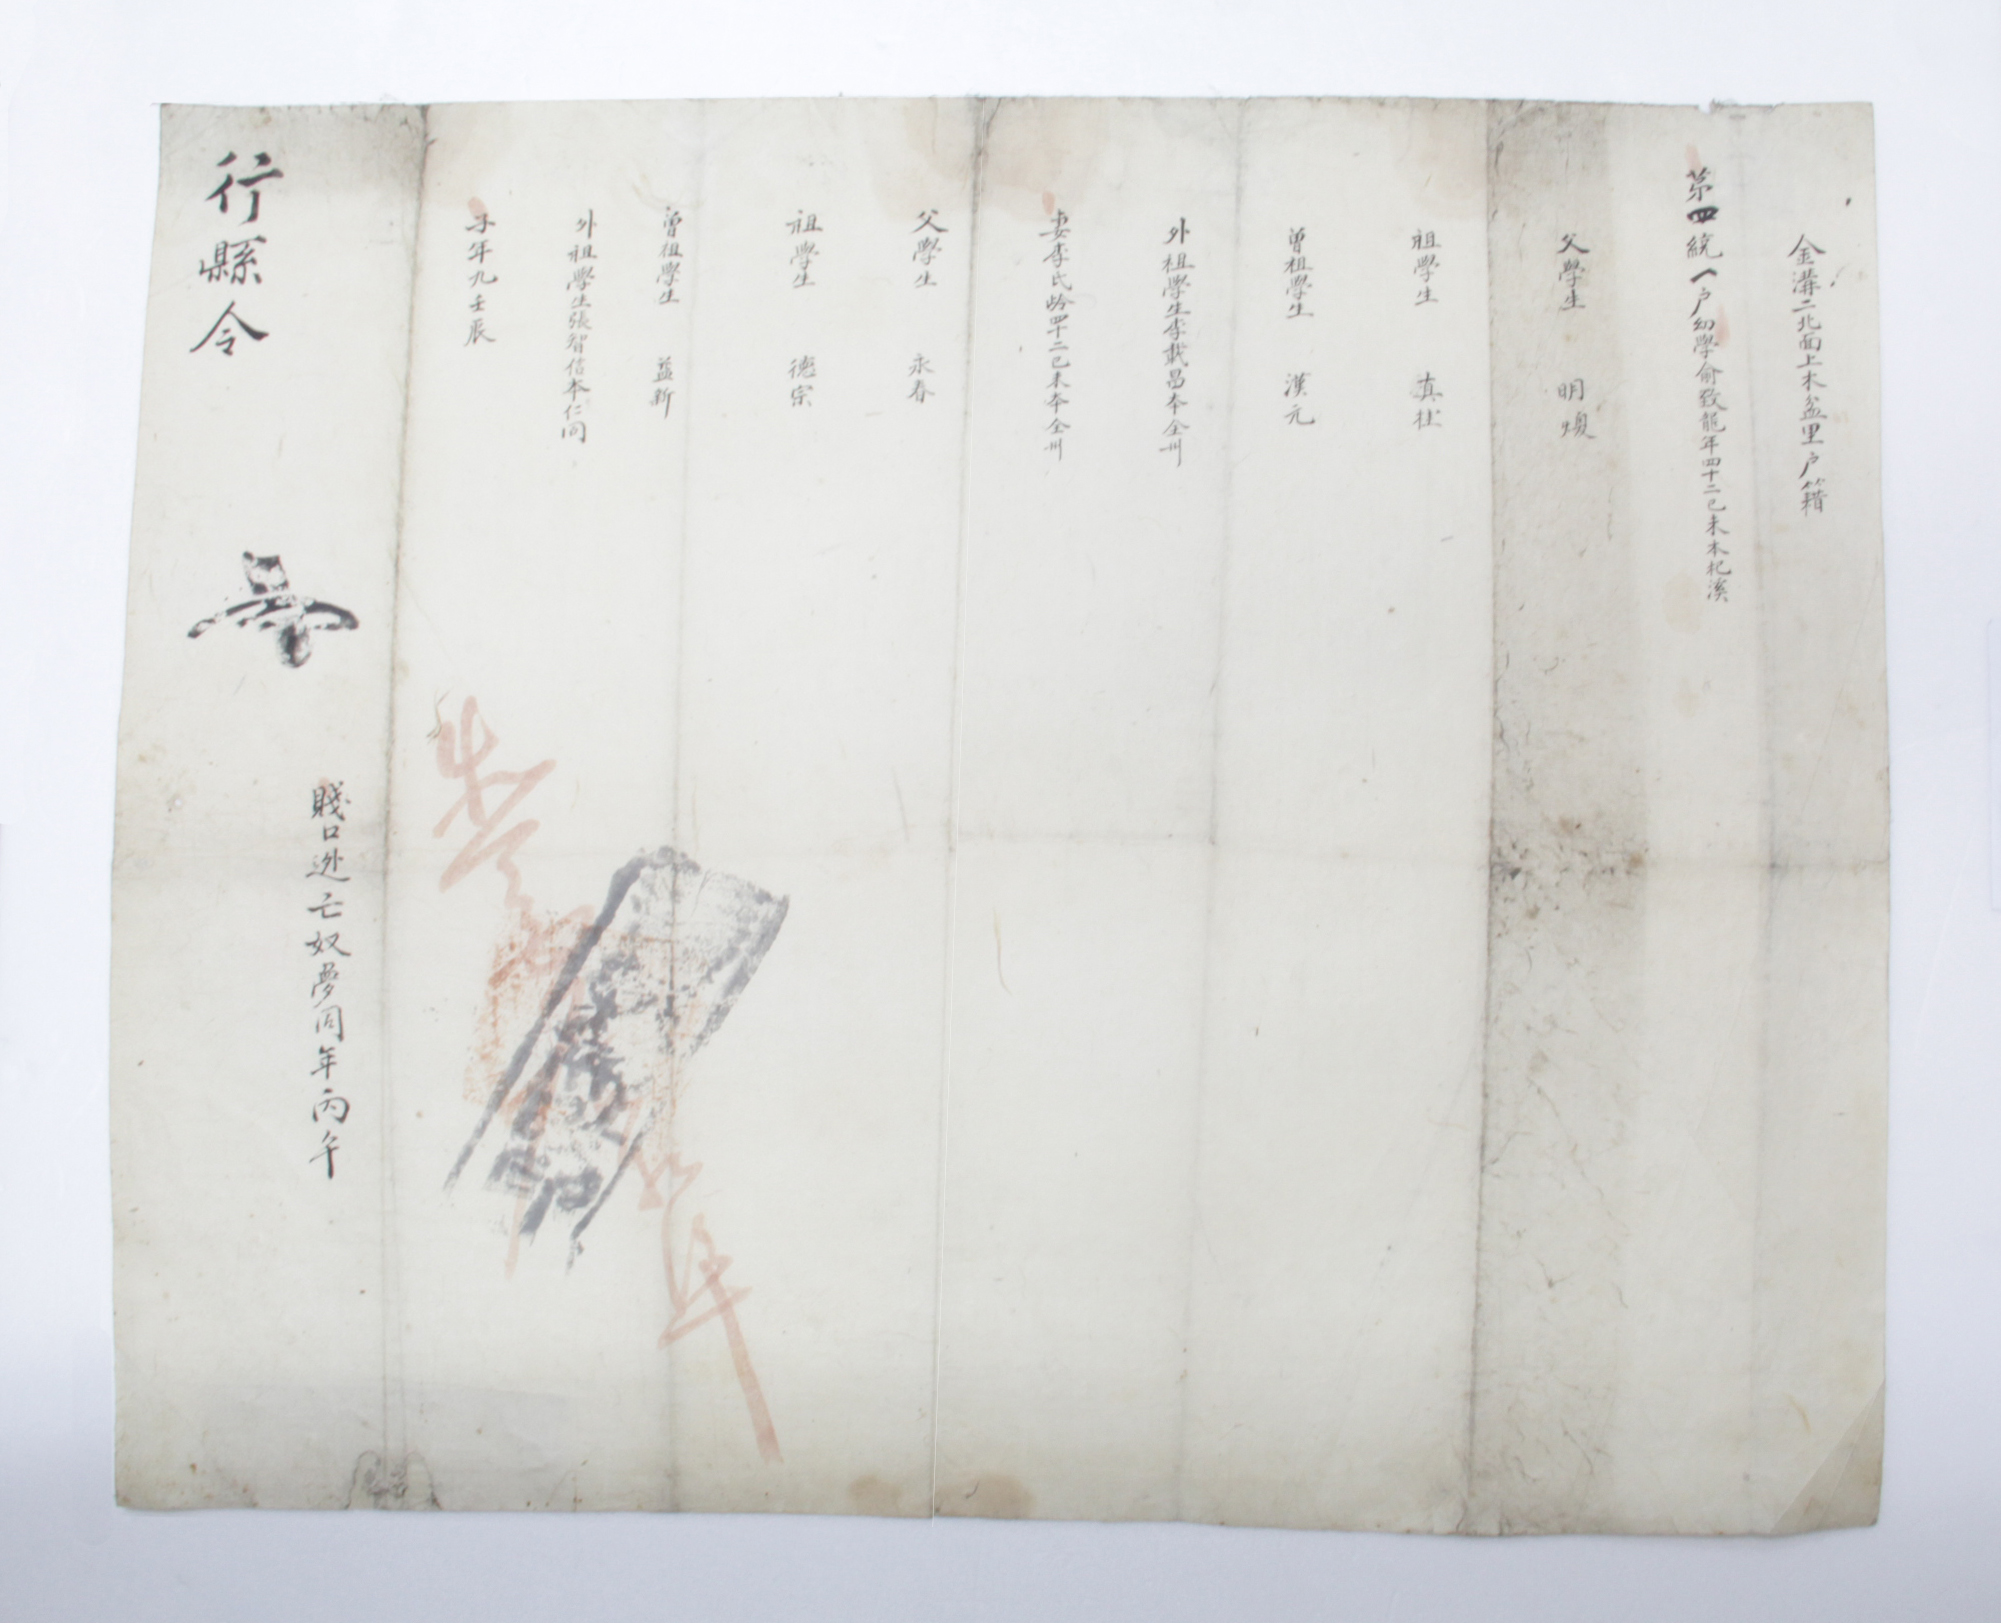 金溝二北面上木益里戶籍
茅四統 戶幼學俞致龍年四十二己未本杞溪
父學生 明煥
祖學生 真柱
曾祖學生 漢元
外祖學生李載昌本全州
妻李氏齡四十二己未本全州
父學生 永春
祖學生 德宗
曾祖學生 益新
外祖學生張智信本仁同
子年九壬辰
賤口逃亡奴夢同年丙午
行縣令